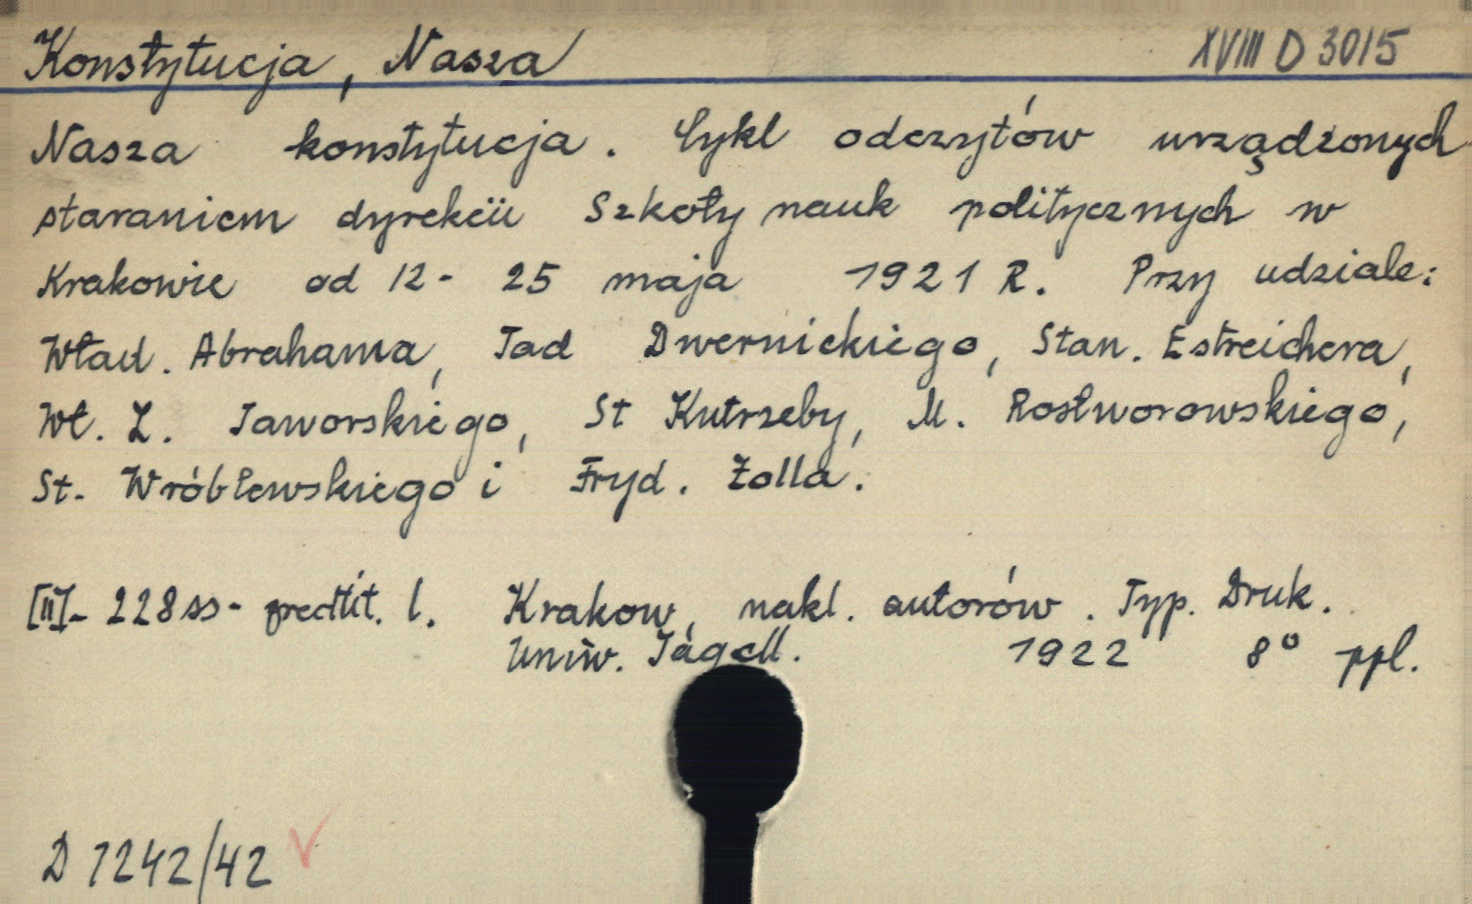 Konstytucja, Nasza XVIII D 3015
Nasza konstytucja. Cykl odczytów urządzonych
staraniem dyrekcii Szkoły nauk politycznych w
Krakowie od 12- 25 maja 1921 R. Przy udziale:
Wład. Abrahama, Tad Dwernickiego, Stan. Estreichera,
Wł. L. Jaworskiego, St Kutrzeby, M. Rostworowskiego,
St. Wróblewskiego i Fryd. Zolla.
[II]- 228 ss- predtit. l. Krakow, nakl. autorów. Typ. Druk.
Uniw. Jagell. 1922 8° ppl.
D 1242/42